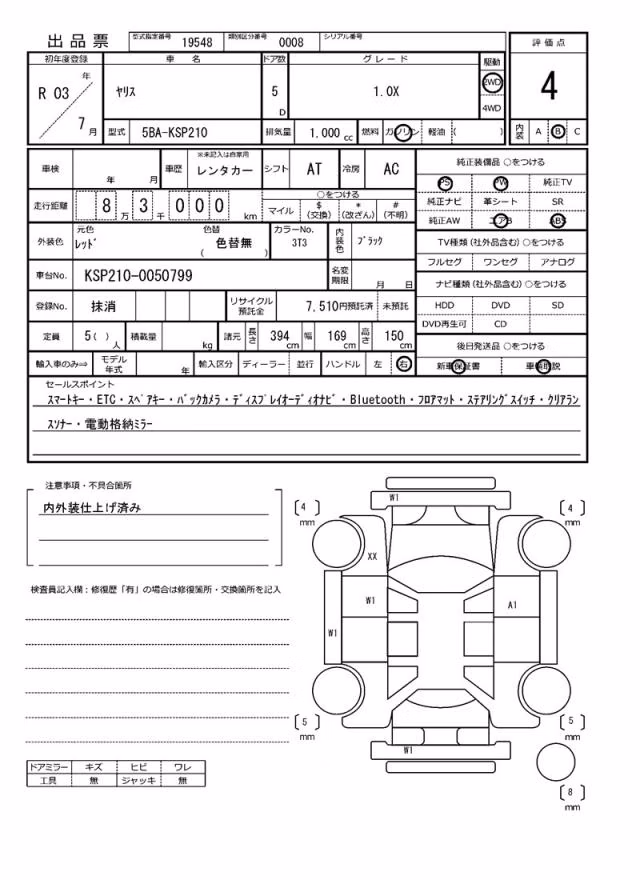 出品票 型式指定番号 19548 類別区分番号 0008 シリアル番号
初年度登録 車名 ドア数 グレード 駆動 評価点
R 03 年 7 月 ヤリス 5 D 1.0X 2WD 4WD 4
型式 5BA-KSP210 排気量 1.000 cc 燃料 ガソリン 軽油 ( ) 内装 A B C
車検 年 月 車歴 ※未記入は自家用 レンタカー シフト AT 冷房 AC
純正装備品 ○をつける
PS PW 純正TV
純正ナビ 革シート SR
純正AW エアB ABS
走行距離 8 万 3 千 0 0 0 km
○をつける
マイル $ (交換) * (改ざん) # (不明)
外装色 元色 レッド 色替 色替無 ( ) カラーNo. 3T3 内装色 ブラック
TV種類 (社外品含む) ○をつける
フルセグ ワンセグ アナログ
車台No. KSP210-0050799 名変期限 月 日
ナビ種類 (社外品含む) ○をつける
HDD DVD SD
DVD再生可 CD
登録No. 抹消 リサイクル預託金 7,510円預託済 未預託
定員 5( )人 積載量 kg 諸元 長さ 394 cm 幅 169 cm 高さ 150 cm
後日発送品 ○をつける
新車保証書 車輌取説
輸入車のみ⇒ モデル年式 年 輸入区分 ディーラー 並行 ハンドル 左 右
セールスポイント
スマートキー・ETC・スペアキー・バックカメラ・ディスプレイオーディオナビ・Bluetooth・フロアマット・ステアリングスイッチ・クリアラン
スソナー・電動格納ミラー
注意事項・不具合箇所
内外装仕上げ済み
検査員記入欄：修復歴「有」の場合は修復箇所・交換箇所を記入
ドアミラー キズ ヒビ ワレ
工具 無 ジャッキ 無
W1
4 mm
4 mm
XX
W1
A1
W1
5 mm
5 mm
W1
8 mm